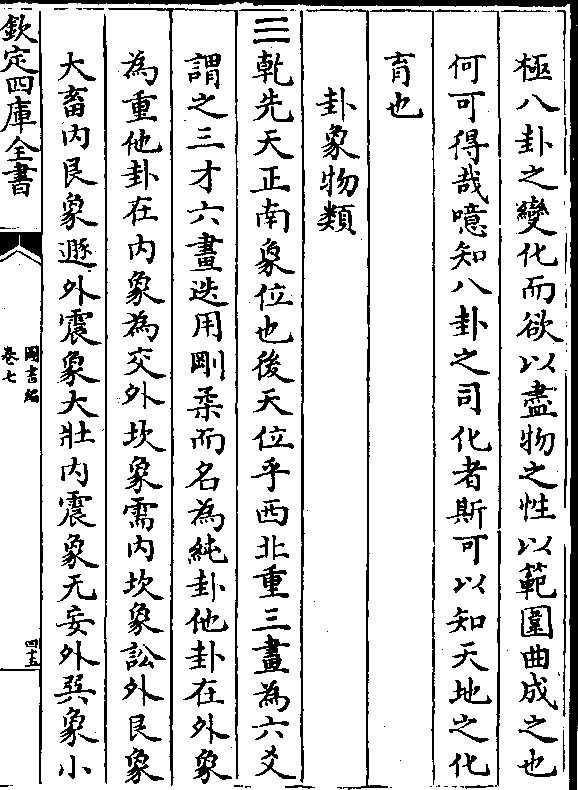 極八卦之變化而欲以盡物之性以範圍曲成之也
何可得哉噫知八卦之司化者斯可以知天地之化
育也
卦象物類
☰乾先天正南象位也後天位乎西北重三畫為六爻
謂之三才六畫迭用剛柔而名為純卦他卦在外象
為重他卦在内象為交外坎象需内坎象訟外艮象
大畜内艮象遯外震象大壯内震象无妄外巽象小
欽定四庫全書
圖書編
卷七
四十五